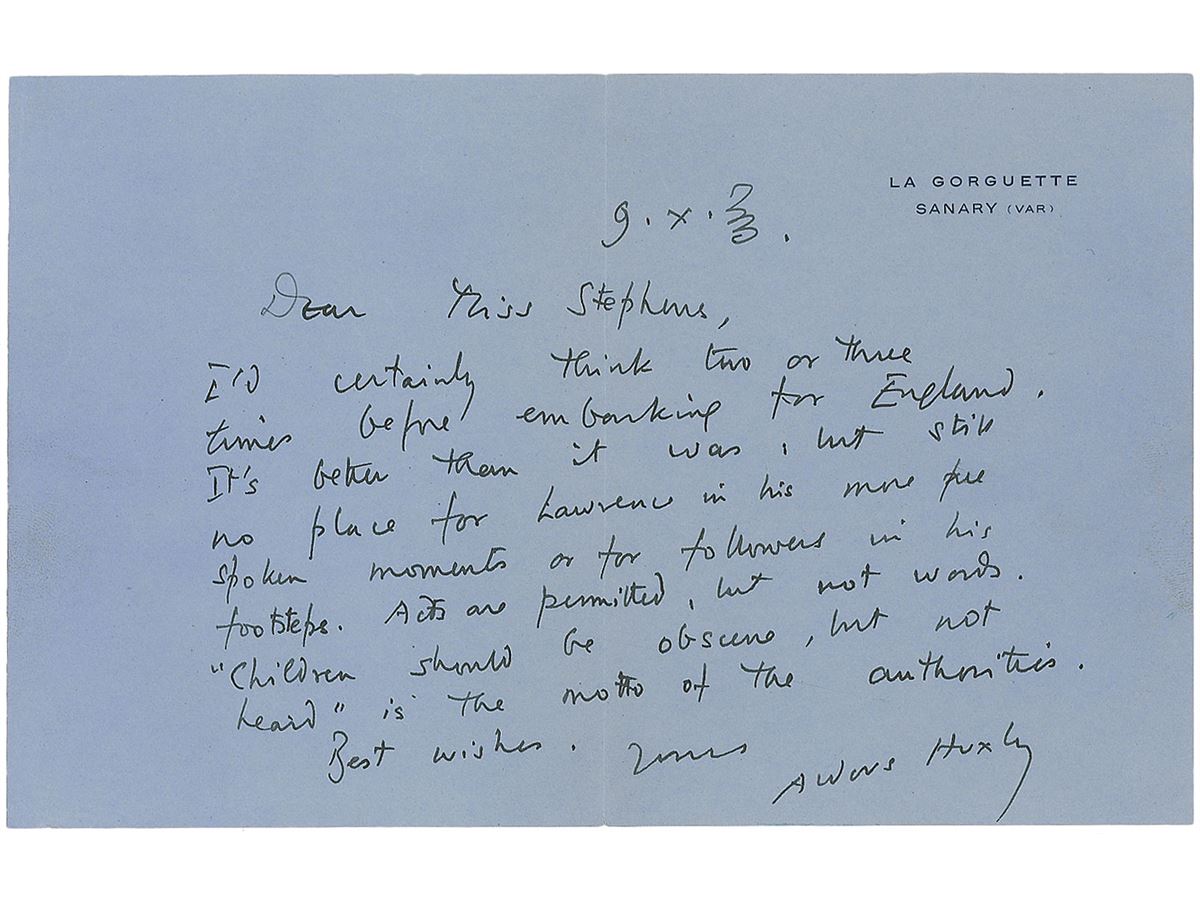 LA GORGUETTE
SANARY (VAR)
9.x.
Dear Miss Stephens,
I'd certainly think two or three
times before embarking for England.
It's better than it was, but still
no place for Lawrence in his more free
spoken moments or for followers in his
footsteps. Acts are permitted, but not words.
"Children should be obscene, but not
heard" is the motto of the authorities.
Best wishes. Yours
Aldous Huxley